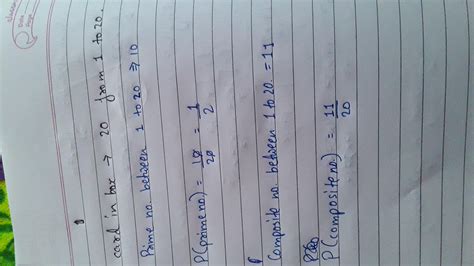 card in box → 20 from 1 to 20.
Prime no. between 1 to 20 ⇒ 10
P(prime no) = 10/20 = 1/2
Composite no. between 1 to 20. = 11
P(composite no.) = 11/20